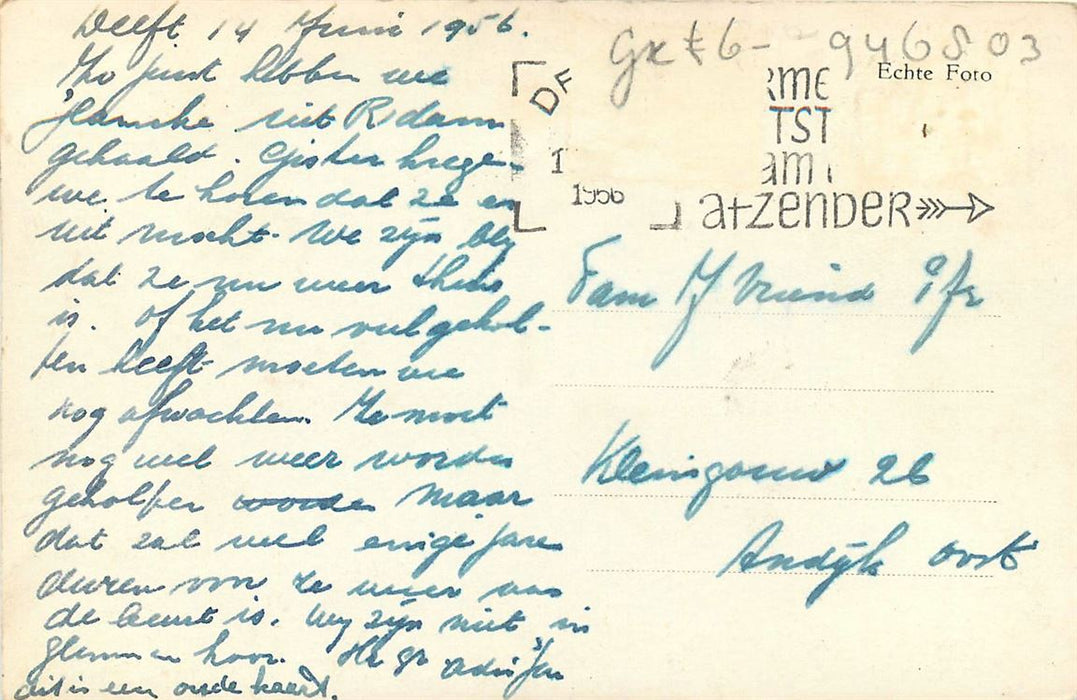 Delft 14 Juni 1956.
Zo juist hebben we
uit Rdam
gehaald. Gister kregen
we te horen dat ze er
uit mocht. We zijn blij
dat ze nu weer thuis
is. Of het nu veel gehol-
pen heeft moeten we
nog afwachten. Ze moet
nog wel weer worden
geholpen maar
dat zal wel enige jaren
duren voor ze weer aan
de beurt is. Wij zijn niet in
hoor. H gr
dit is een oude kaart.
Gx £6- 946503
Echte Foto
1956
atzender
Fam Vriend
Kleingouw 26
Andijk oost